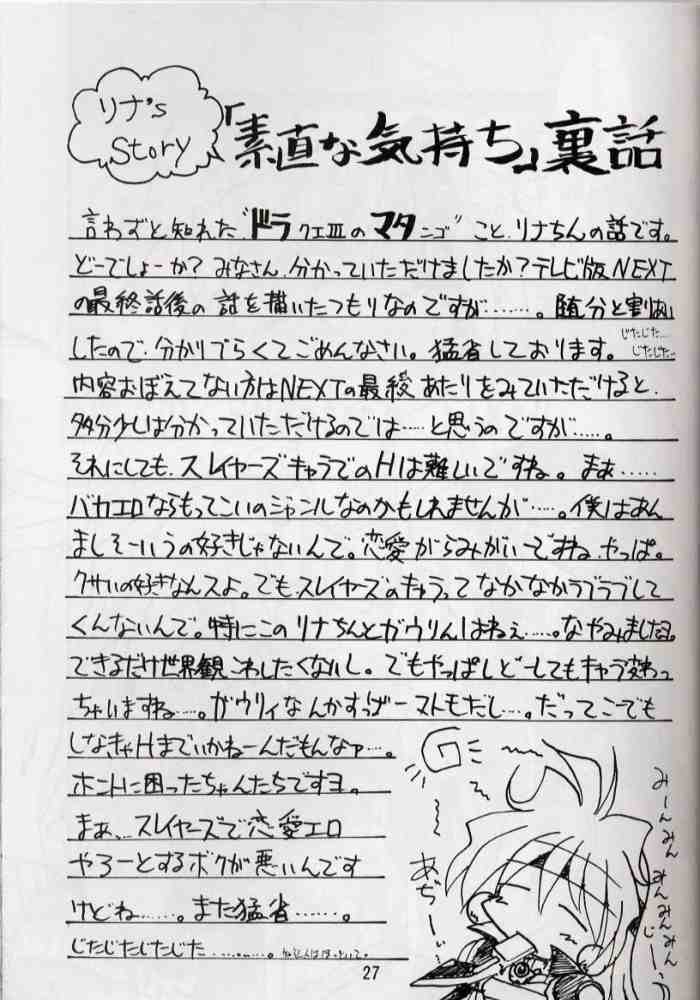 リナ's
Story
「素直な気持ち」裏話
言わずと知れた“ドラクエⅢのマタンゴ”こと、リナちんの話です。
どーでしょーか？みなさん、分かっていただけましたか？テレビ版NEXT
の最終話後の話を描いたつもりなのですが……。随分と割愛
したので、分かりづらくてごめんなさい。猛省しております。
じたじた…
じたじた…
内容おぼえてない方はNEXTの最終あたりをみていただけると、
多分少しは分かっていただけるのでは…と思うのですが……。
それにしても、スレイヤーズキャラでのHは難しいですね。まぁ……
バカエロならもってこいのジャンルなのかもしれませんが……。僕はあん
ましそーいうの好きじゃないんで。恋愛がらみがいーですね、やっぱ。
クサいの好きなんスよ。でも、スレイヤーズのキャラってなかなかラブラブして
くんないんで。特にこのリナちんとガウりんはねぇ……。なやみましたョ。
できるだけ世界観こわしたくないし。でもやっぱしどーしてもキャラ変わっ
ちゃいますね……。ガウリィなんかすげーマトモだし…。だってこーでも
しなきゃHまでいかねーんだもんなァ…。
ホントに困ったちゃんたちですヨ。
まぁ、スレイヤーズで恋愛エロ
やろーとするボクが悪いんです
けどね……。また猛省……。
じたじたじたじた………。
みーんみん
みんみんみん
じーっ
あぢーぃ
27